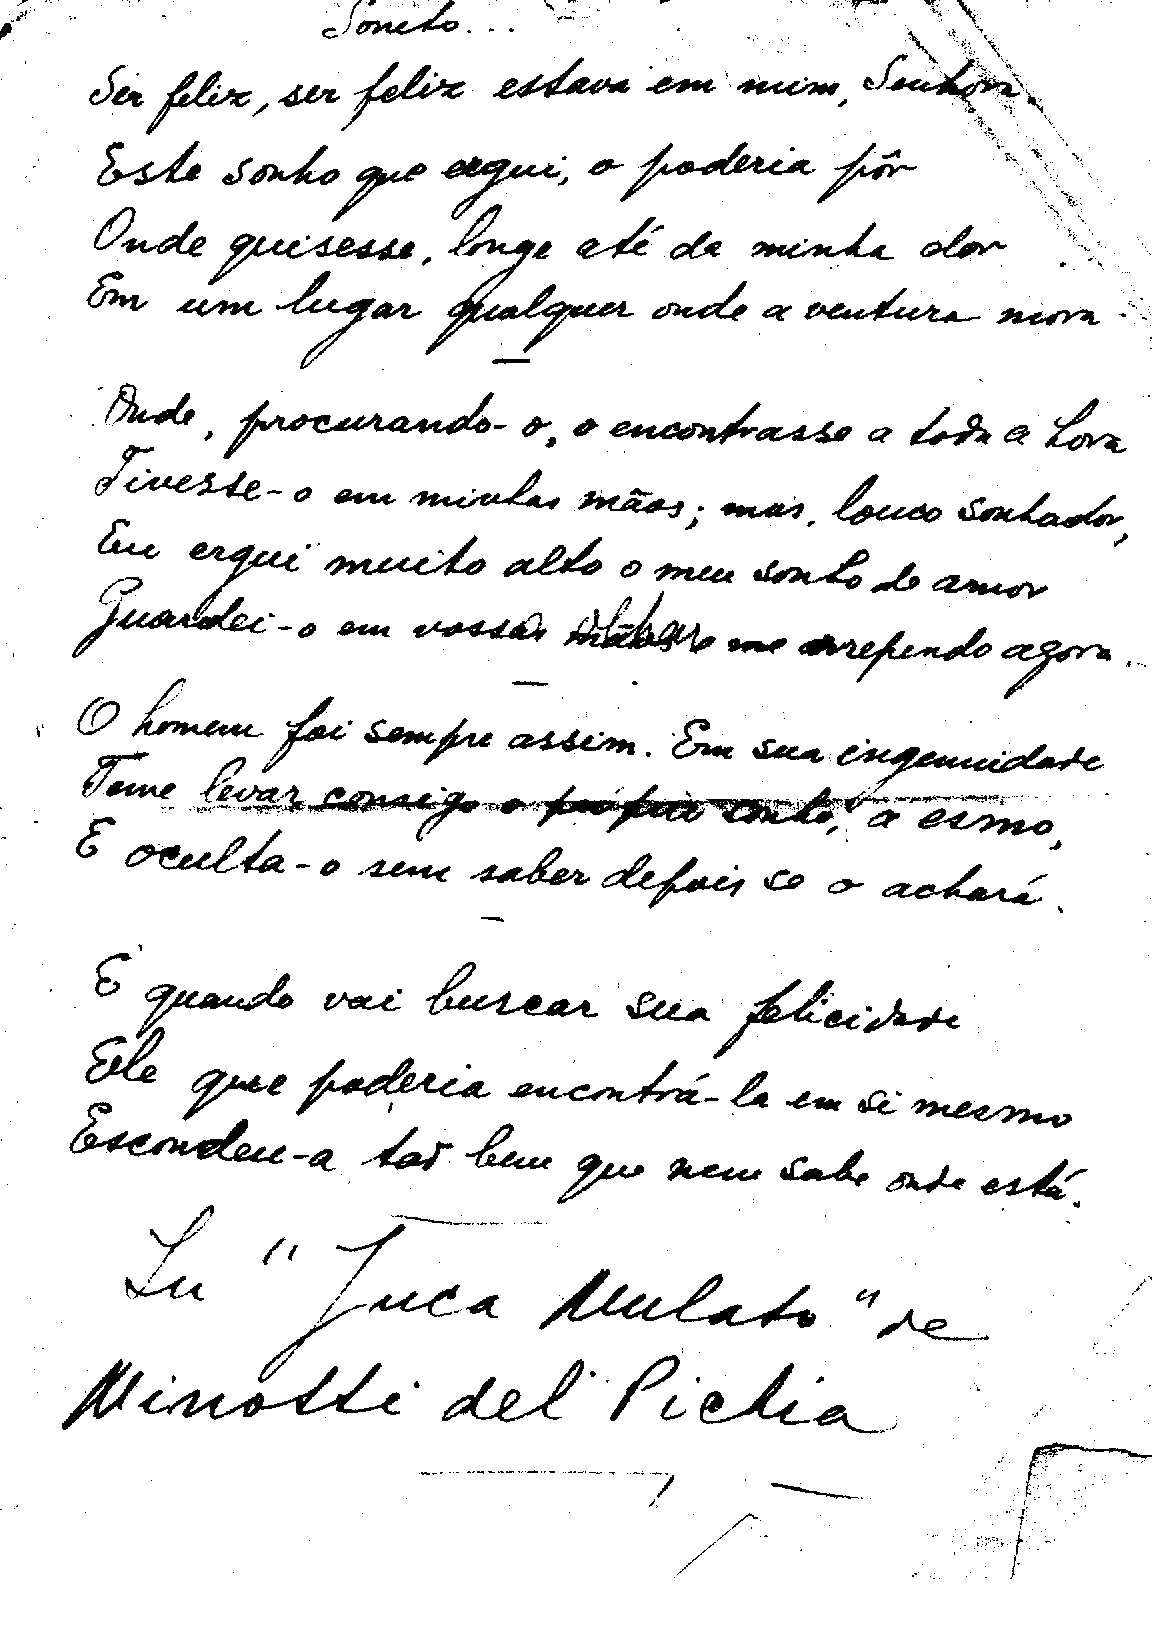 Soneto...
Ser feliz, ser feliz estava em mim, Senhora.
Este sonho que ergui, o poderia pôr
Onde quisesse, longe até da minha dor
Em um lugar qualquer onde a ventura mora
Onde, procurando-o, o encontrasse a toda a hora
Tivesse-o em minhas mãos; mas, louco sonhador,
Eu ergui muito alto o meu sonho de amor
Guardei-o em vossas me arrependo agora.
O homem foi sempre assim. Em sua ingenuidade
Teme levar consigo o próprio sonho, a esmo,
E oculta-o sem saber depois se o achará.
E quando vai buscar sua felicidade
Ele que poderia encontrá-la em si mesmo
Escondeu-a tão bem que nem sabe onde está.
In "Juca Mulato" de
Minotti del Pichia